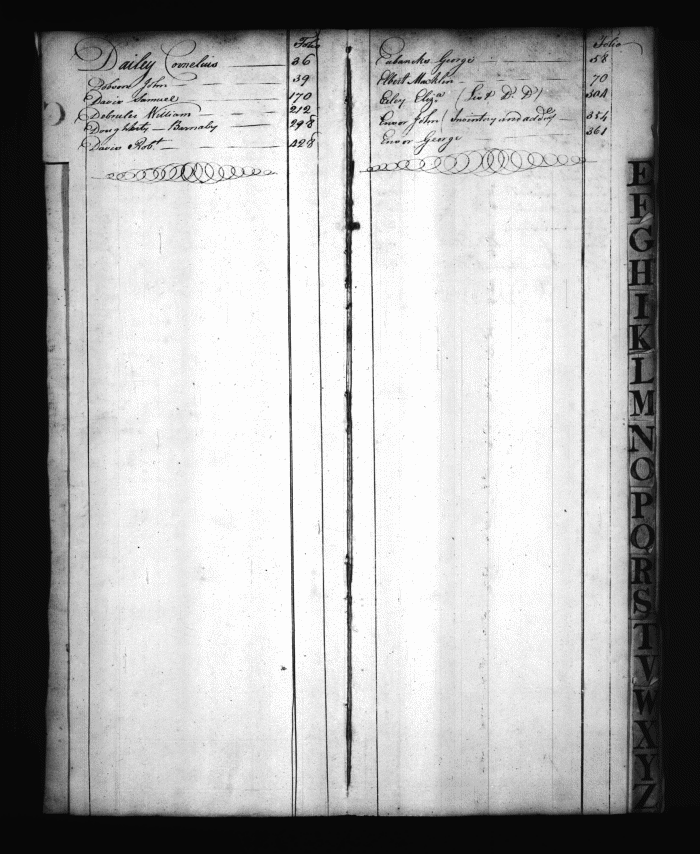 Folio
Dailey Cornelius 36
Dobson John 39
Davis Samuel 170
William 212
Dougherty Barnaby 298
Davis Robt 328
Folio
Eubanks George 58
Elbert Macklin 70
Eiley Eliza (List D. D) 304
Ensor John (Inventory and addl) 354
Ensor George 361
E
F
G
H
I
K
L
M
N
O
P
Q
R
S
T
V
W
X
Y
Z